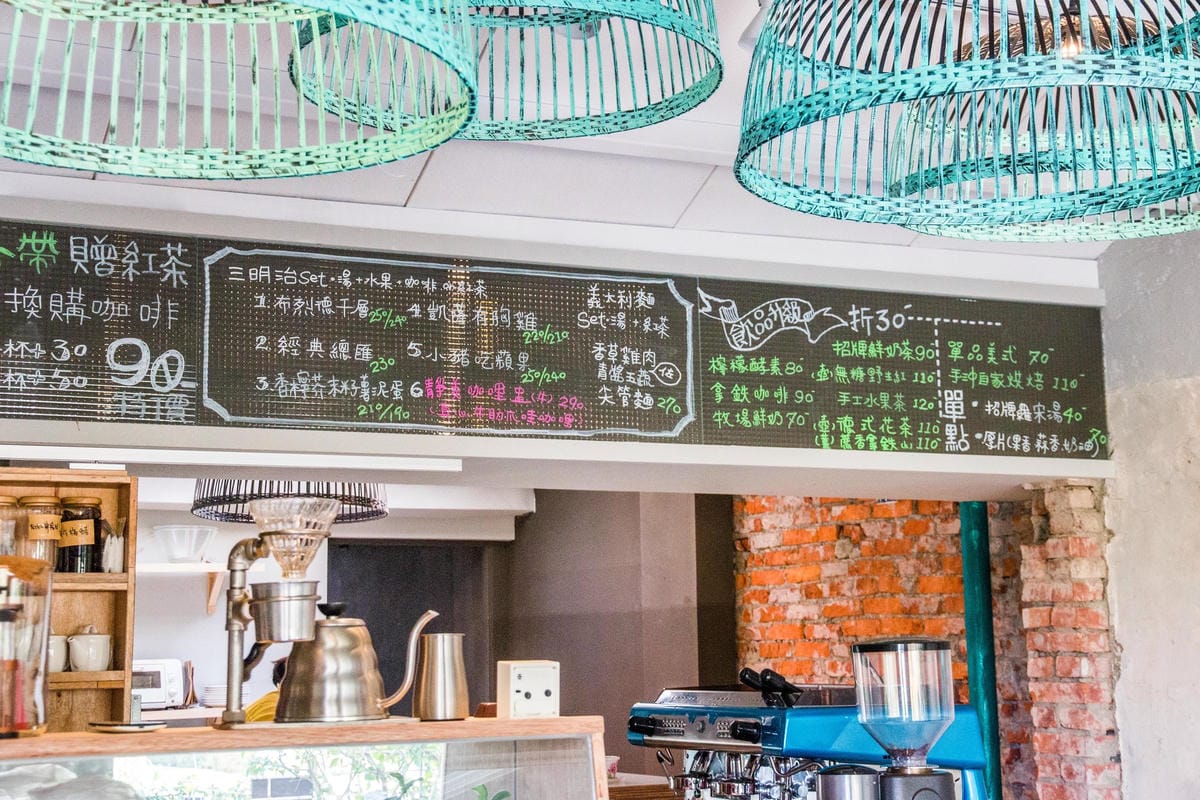 帶 贈紅茶
換購咖啡
杯+30
杯+50
90
特價
三明治Set:湯+水果+咖啡 or 紅茶
1.布列德千層 250/240
2.經典總匯 230
3.香檸芥末籽薯泥蛋 210/190
4.凱薩有夠雞 220/210
5.小豬吃蘋果 250/240
6. 咖哩 290
義大利麵
Set:湯+紅茶
香草雞肉
青醬玉蔬
尖管麵 270
飲品 折30
檸檬酵素 80
拿鐵咖啡 90
牧場鮮奶 70
招牌鮮奶茶 90
(壺)無糖野生紅 110
手工水果茶 120
(壺)德式花茶 110
(壺)薰香拿鐵山 110
單品美式 70
手沖自家烘焙 110
單點
·招牌羅宋湯 40
·厚片(果香.蒜香.奶油) 70